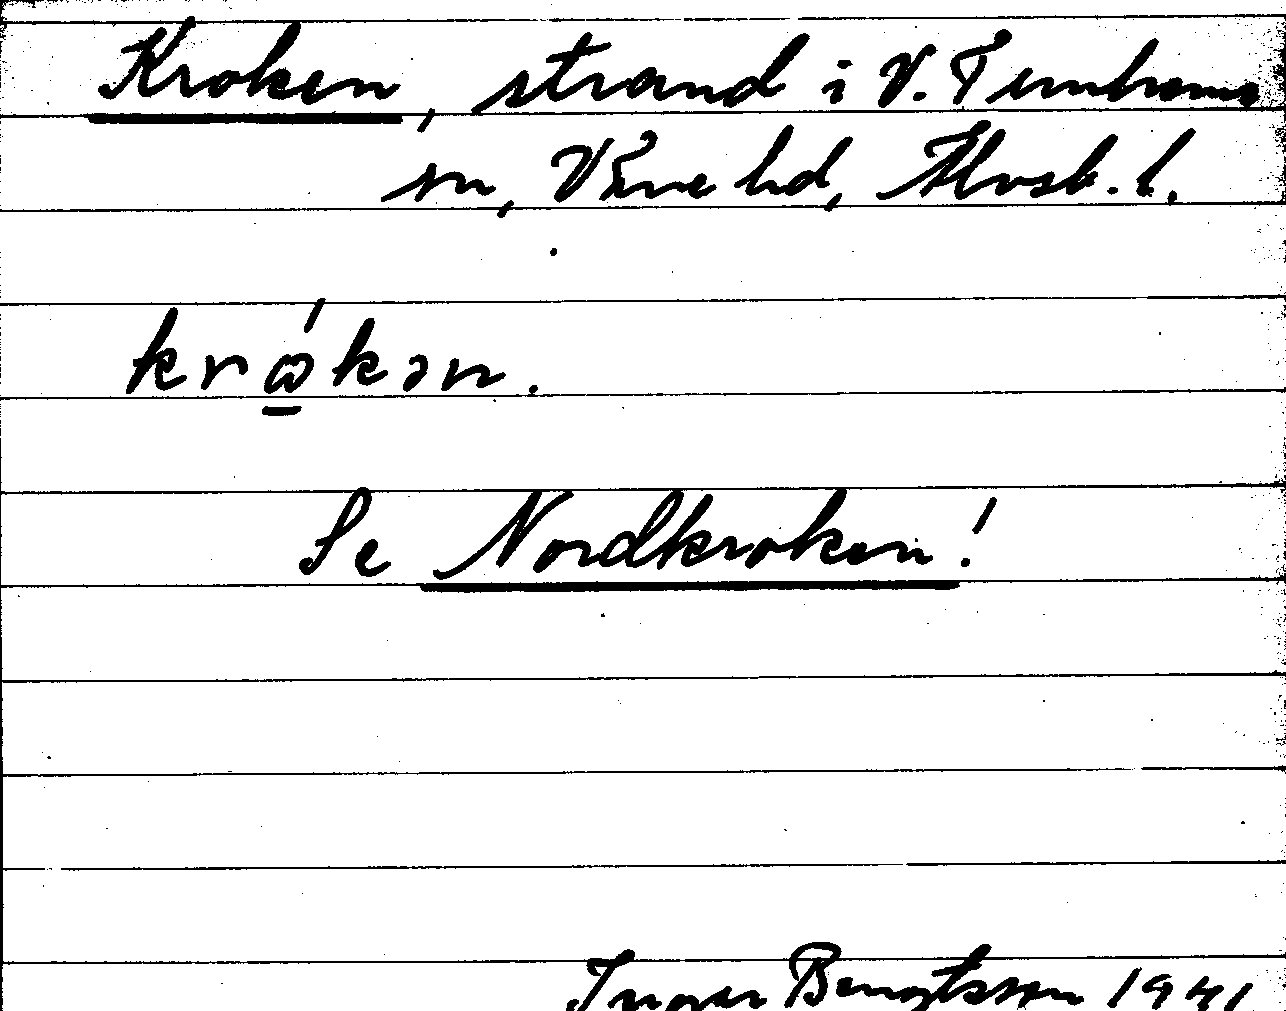 Kroken, strand i V. Tunhems
sn, Väne hd, Älvsb. l.
krώ̱kən.
Se Nordkroken!
Ingvar Bengtsson 1941